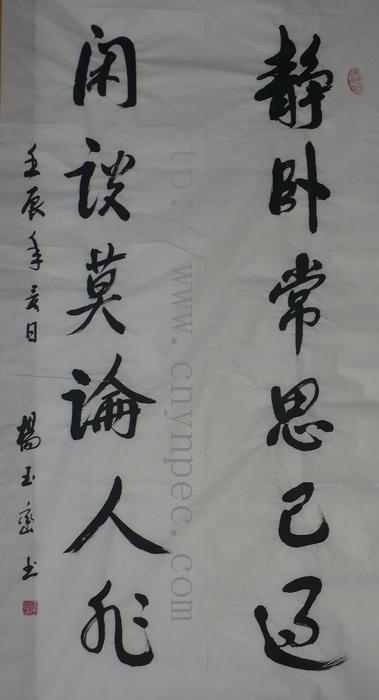 静卧常思己过
闲谈莫論人非
壬辰年亥月
楊玉峦书
http://www.cnynpec.com